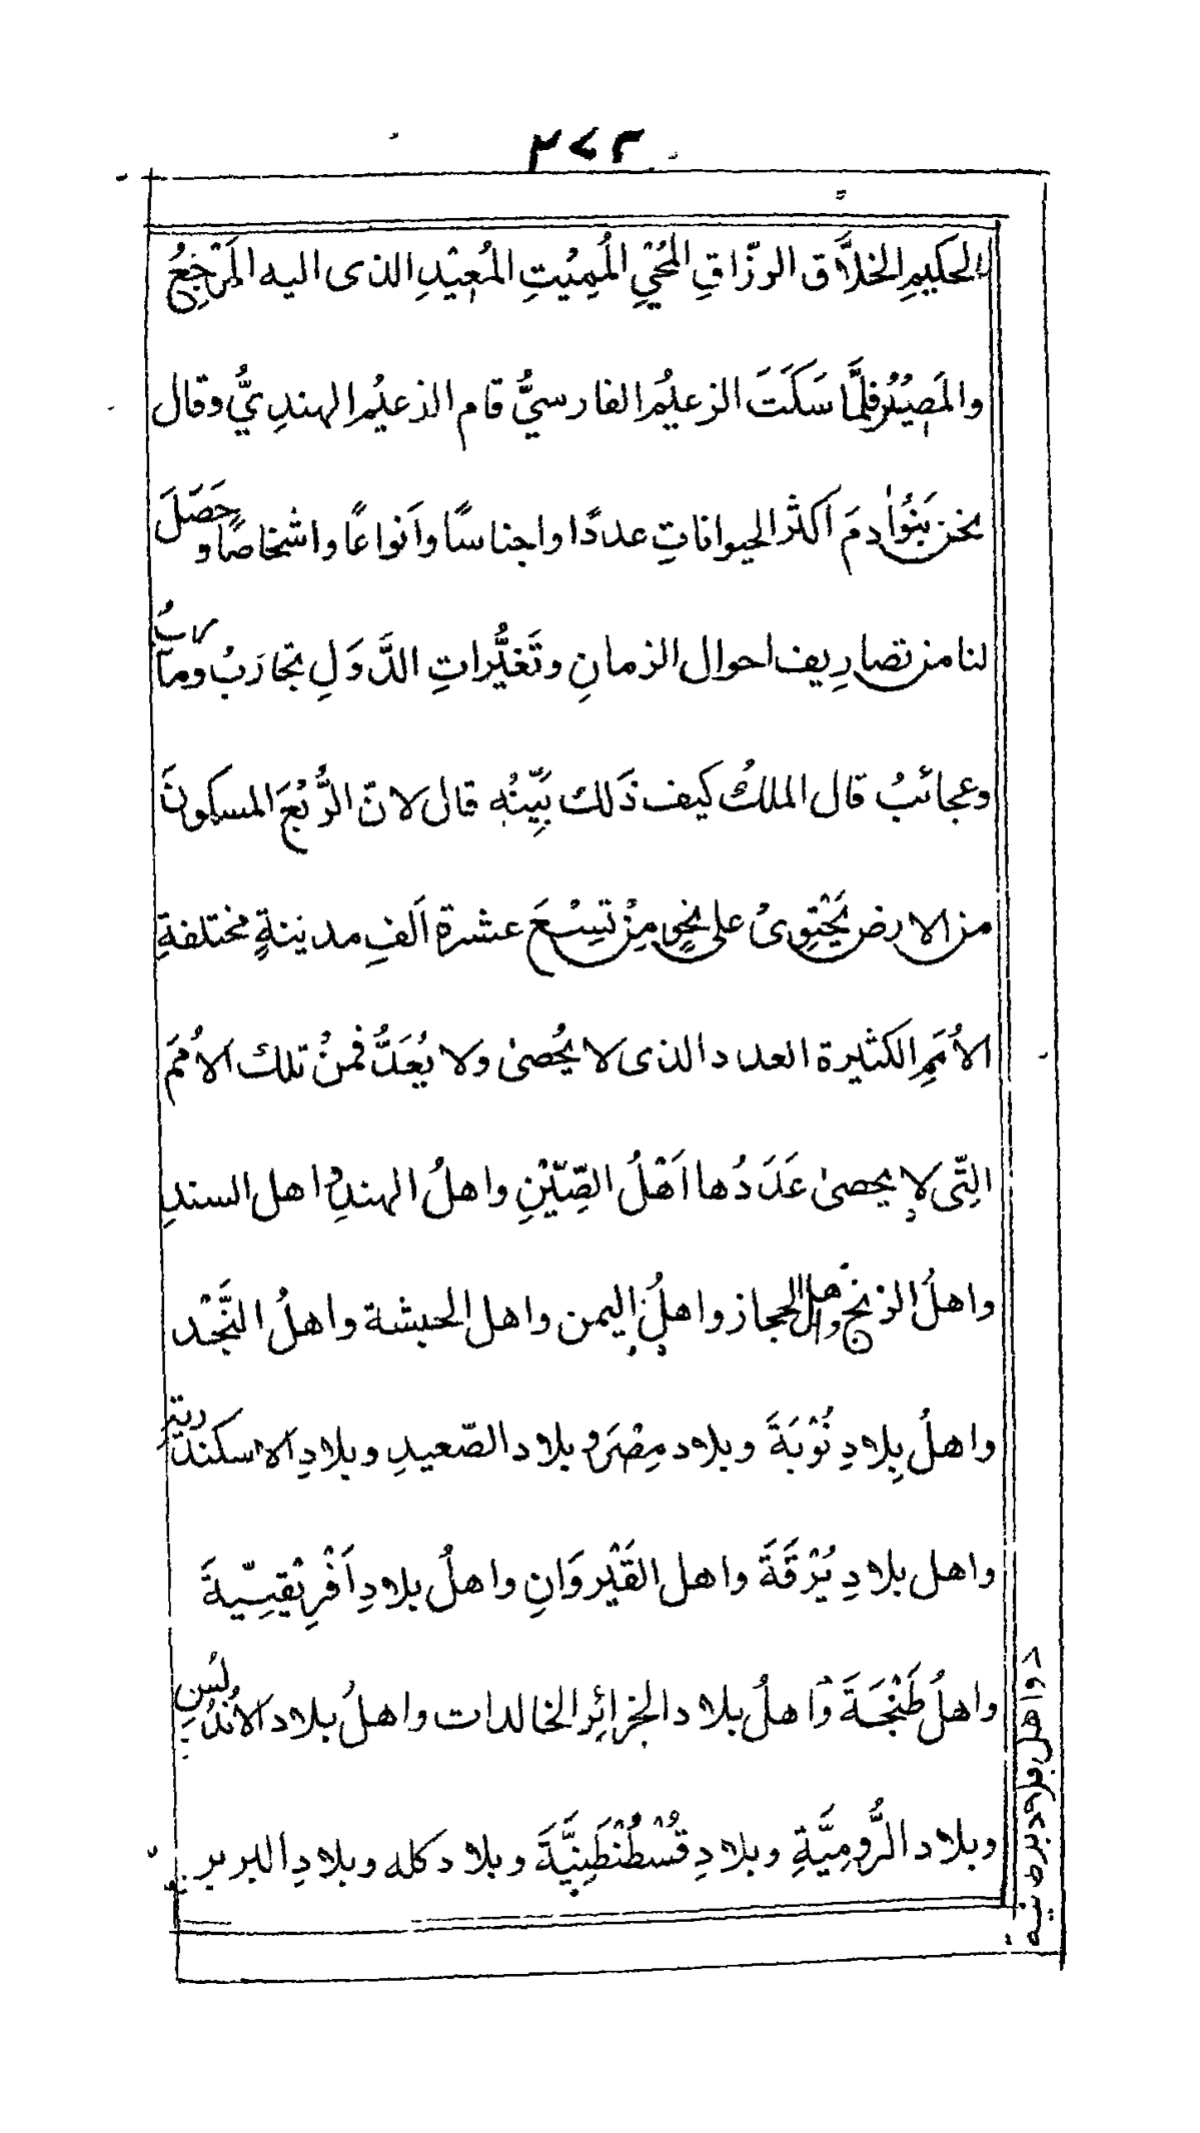 ٢٧٢
الحكيمِ الخلاَّق الرزّاقِ المُحْيِ المُمِيْتِ المُعِيْدِ الذى اليه المَرْجِعُ
والمَصِيْرُ فلمَّا سَكَتَ الزعيْمُ الفارسيُّ قام الزعيْمُ الهندِيُّ وقال
نحن بَنُوْاٰدمَ اَكثر الحيواناتِ عددًا واجناسًا واَنواعًا واشخاصًا وحَصَلَ
لنا من تصارِيف احوال الزمانِ وتَغيُّراتِ الدَّوَلِ تجارَبُ ومآرِبُ
وعجائبُ قال الملكُ كيف ذَلك بَيِّنْهُ قال لانّ الرُّبْعَ المسكونَ
من الارض يَحْتِوِىْ على نحوٍ مِنْ تِسْعَ عشرة اَلفِ مدينةٍ مختلفةِ
الاُمَمِ الكثيرة العدد الذى لا يُحصىٰ ولا يُعَدُّ فمنْ تلك الاُممَ
التِّى لا يحصىٰ عَدَدُها اَهْلُ الصِّيْنِ واهلُ الهندِ واهل السندِ
واهلُ الزنج واهل الحجاز واهلُ اليمن واهل الحبشة واهلُ النَّجْد
واهلُ بِلادِ نُوْبَةَ وبلاد مِصْرَ وبلاد الصّعيدِ وبلادِ الاسكندريّةِ
واهل بلادِ بُرْقَةَ واهل القَيْروَانِ واهلُ بلادِ اَفْرِيْقِيّةَ
واهلُ طَنْجَةَ وَاهلُ بلاد الجزائِر الخالدات واهلُ بلاد الاُندُلسِ
وبلاد الرُّومِيَّةِ وبلادِ قُسْطُنْطَنِيَّةَ وبلاد كله وبلادِ البربر
واهل بلاد برطنيه